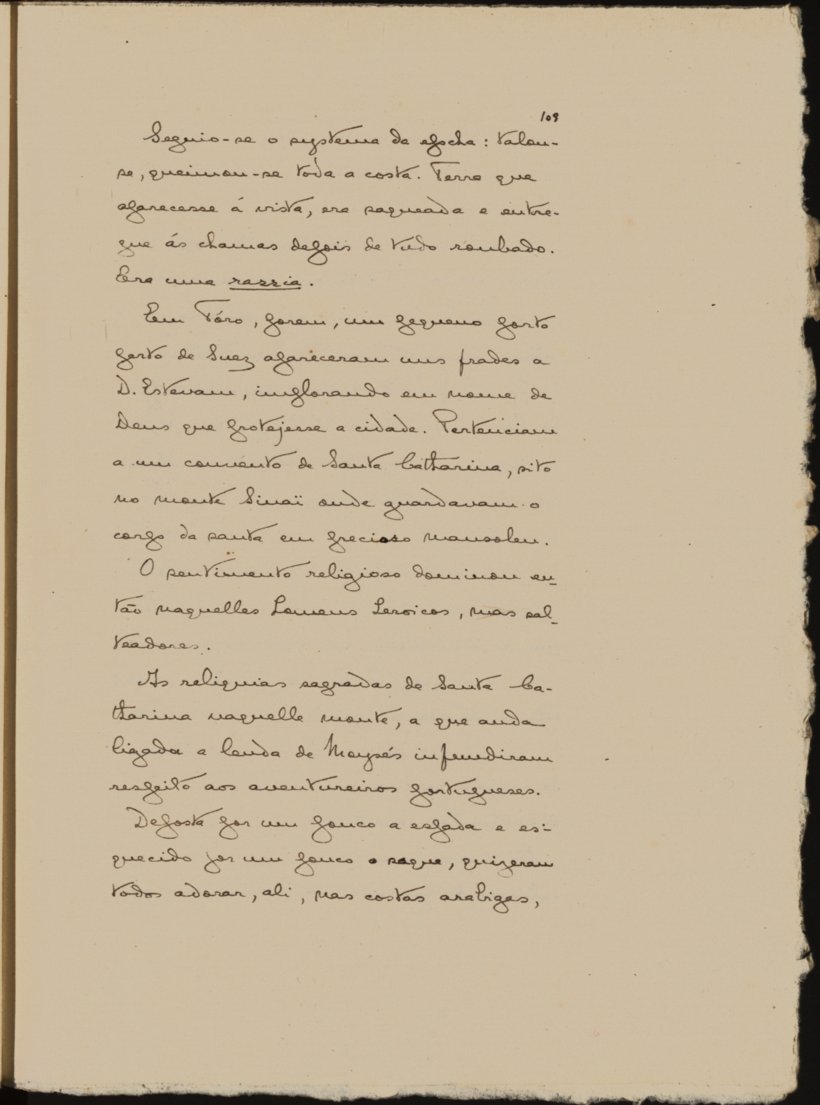 109
Seguio-se o systema da epocha: talou-
se, queimou-se toda a costa. Terra que
aparecesse á vista, era saqueada e entre-
gue ás chamas depois de tudo roubado.
Era uma razzia.
Em Tóro, porem, um pequeno porto
perto de Suez apareceram uns frades a
D. Estevam, implorando em nome de
Deus que protejesse a cidade. Pertenciam
a um convento de Santa Catharina, sito
no monte Sinaï onde guardavam o
corpo da santa em precioso mausoleu.
O sentimento religioso dominou en-
tão naquelles homens heroicos, mas sal-
teadores.
As reliquias sagradas de Santa Ca-
tharina naquelle monte, a que anda
ligada a lenda de Moysés infundiram
respeito aos aventureiros portugueses.
Deposta por um pouco a espada e es-
quecido por um pouco o saque, quizeram
todos adorar, ali, nas costas arabigas,